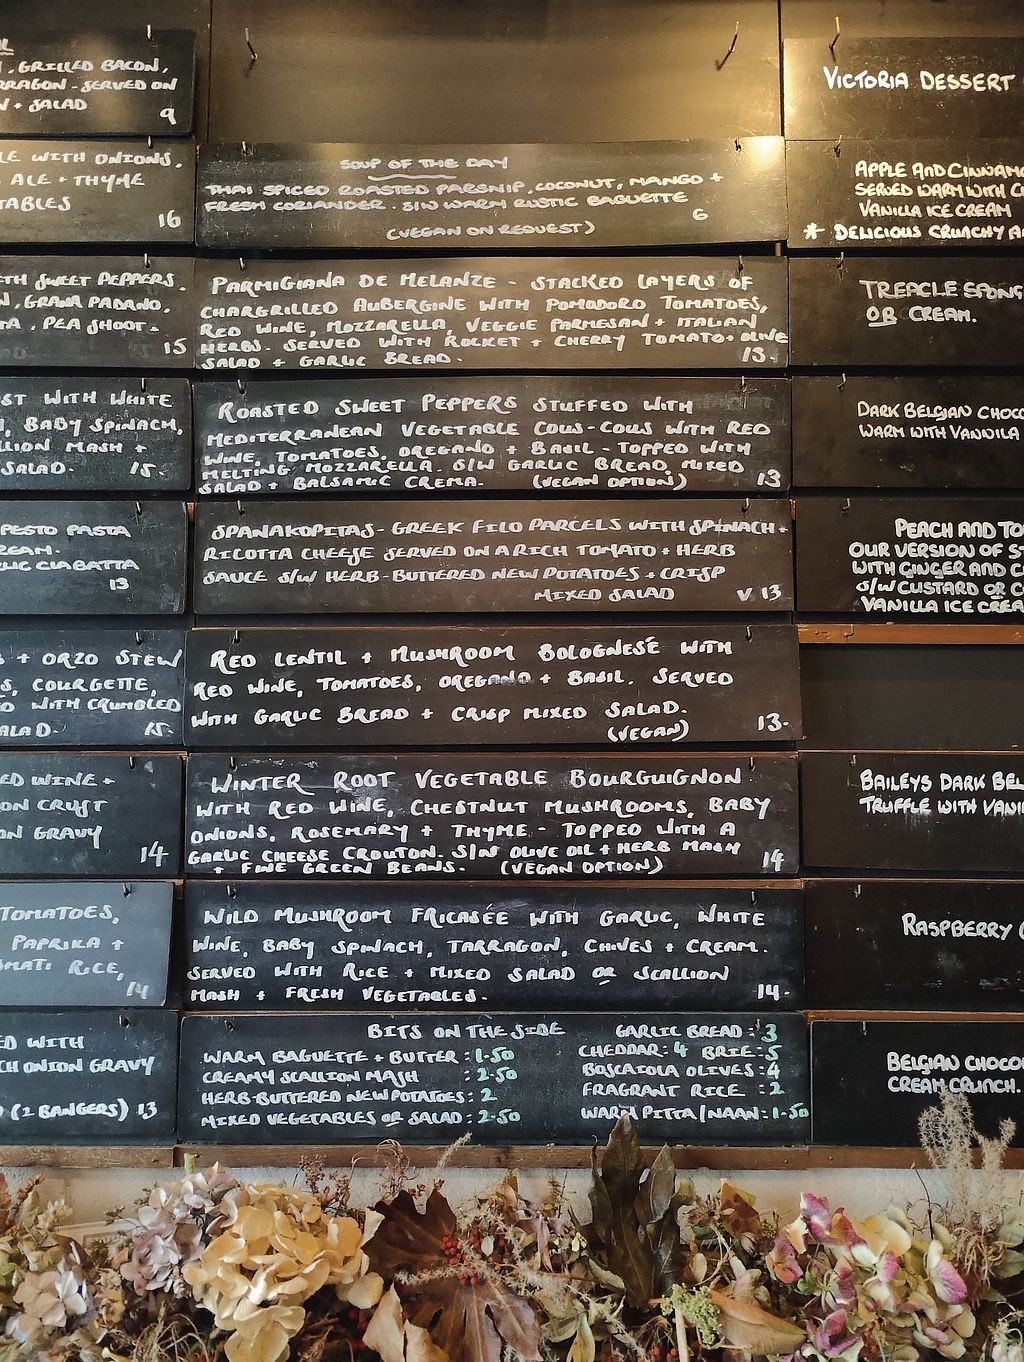 , GRILLED BACON,
RRAGON - SERVED ON
+ SALAD
9
WITH ONIONS,
ALE + THYME
TABLES
16
SWEET PEPPERS.
, GRANA PADANO,
, PEA SHOOT-
15
WITH WHITE
, BABY SPINACH,
MASH +
SALAD.
15.
PESTO PASTA
CIABATTA
13
+ ORZO STEW
, COURGETTE,
WITH CRUMBLED
15.
WINE +
CRUST
GRAVY
14
TOMATOES,
PAPRIKA +
RICE,
14
WITH
ONION GRAVY
(2 BANGERS) 13
SOUP OF THE DAY
THAI SPICED ROASTED PARSNIP, COCONUT, MANGO +
FRESH CORIANDER. S/W WARM RUSTIC BAGUETTE
6
(VEGAN ON REQUEST)
PARMIGIANA DE MELANZE - STACKED LAYERS OF
CHARGRILLED AUBERGINE WITH POMODORO TOMATOES,
RED WINE, MOZZARELLA, VEGGIE PARMESAN + ITALIAN
HERBS. SERVED WITH ROCKET + CHERRY TOMATO + OLIVE
SALAD + GARLIC BREAD.
13.
ROASTED SWEET PEPPERS STUFFED WITH
MEDITERRANEAN VEGETABLE COUS-COUS WITH RED
WINE, TOMATOES, OREGANO + BASIL - TOPPED WITH
MELTING MOZZARELLA. S/W GARLIC BREAD, MIXED
SALAD + BALSAMIC CREMA. (VEGAN OPTION) 13
SPANAKOPITAS - GREEK FILO PARCELS WITH SPINACH +
RICOTTA CHEESE SERVED ON A RICH TOMATO + HERB
SAUCE S/W HERB-BUTTERED NEW POTATOES + CRISP
MIXED SALAD V 13
RED LENTIL + MUSHROOM BOLOGNESÉ WITH
RED WINE, TOMATOES, OREGANO + BASIL. SERVED
WITH GARLIC BREAD + CRISP MIXED SALAD.
(VEGAN) 13.
WINTER ROOT VEGETABLE BOURGUIGNON
WITH RED WINE, CHESTNUT MUSHROOMS, BABY
ONIONS, ROSEMARY + THYME - TOPPED WITH A
GARLIC CHEESE CROUTON. S/W OLIVE OIL + HERB MASH
+ FINE GREEN BEANS. (VEGAN OPTION) 14
WILD MUSHROOM FRICASÉE WITH GARLIC, WHITE
WINE, BABY SPINACH, TARRAGON, CHIVES + CREAM.
SERVED WITH RICE + MIXED SALAD OR SCALLION
MASH + FRESH VEGETABLES. 14.
BITS ON THE SIDE
WARM BAGUETTE + BUTTER : 1.50
CREAMY SCALLION MASH : 2.50
HERB-BUTTERED NEW POTATOES : 2
MIXED VEGETABLES OR SALAD : 2.50
GARLIC BREAD : 3
CHEDDAR : 4 BRIE : 5
BOSCAIOLA OLIVES : 4
FRAGRANT RICE : 2
WARM PITTA/NAAN : 1.50
VICTORIA DESSERT
APPLE AND CINNAMO
SERVED WARM WITH C
VANILLA ICE CREAM
* DELICIOUS CRUNCHY A
TREACLE SPONG
OR CREAM.
DARK BELGIAN CHOCO
WARM WITH VANILLA
PEACH AND TO
OUR VERSION OF S
WITH GINGER AND C
S/W CUSTARD OR C
VANILLA ICE CREA
BAILEYS DARK BEL
TRUFFLE WITH VANI
RASPBERRY
BELGIAN CHOCO
CREAM CRUNCH.